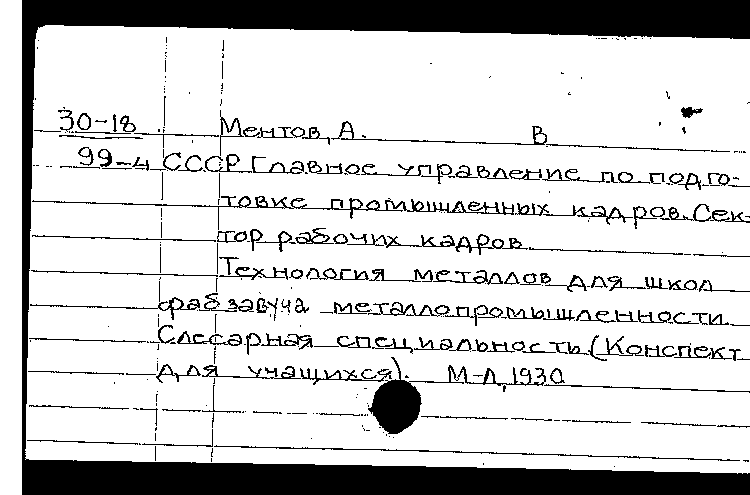 30-18 Ментов, А. В
99-4 СССР Главное управление по подго-
товке промышленных кадров. Сек-
тор рабочих кадров.
Технология металлов для школ
фабзавуча металлопромышленности.
Слесарная специальность (Конспект
для учащихся). М-Л, 1930